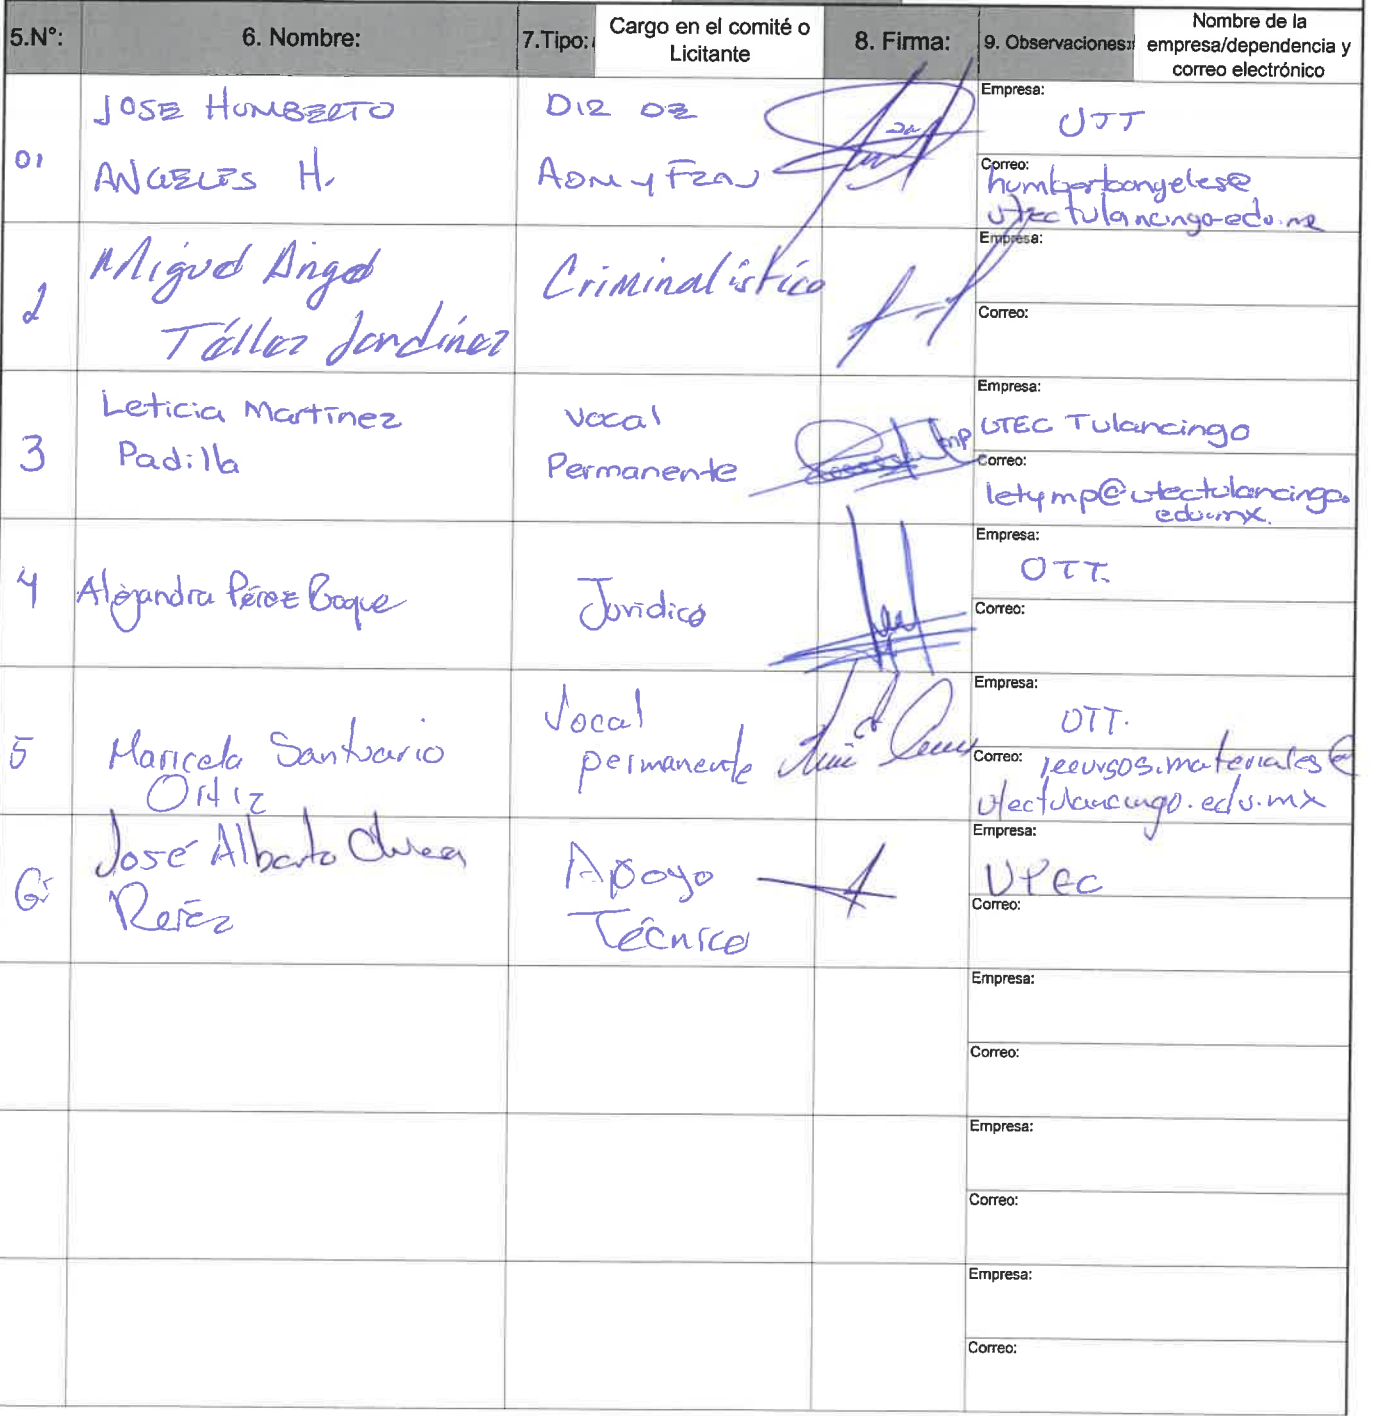 5.N°: 6. Nombre: 7.Tipo: Cargo en el comité o Licitante 8. Firma: 9. Observaciones: Nombre de la empresa/dependencia y correo electrónico
01
JOSE HUMBERTO
ANGELES H.
DIR DE
ADM y FZAS
Empresa:
UTT
Correo:
humbertoangeles@
utectulancingo.edu.mx
2
Miguel Angel
Téllez Jardínez
Criminalístico
Empresa:
Correo:
3
Leticia Martínez
Padilla
Vocal
Permanente
Empresa:
UTEC Tulancingo
Correo:
letymp@utectulancingo.
edu.mx.
4
Alejandra Pérez
Jurídico
Empresa:
UTT.
Correo:
5
Maricela Santuario
Ortiz
Vocal
permanente
Empresa:
UTT.
Correo:
recursos.materiales@
utectulancingo.edu.mx
6
José Alberto
Pérez
Apoyo
Técnico
Empresa:
UTEC
Correo:
Empresa:
Correo:
Empresa:
Correo:
Empresa:
Correo: